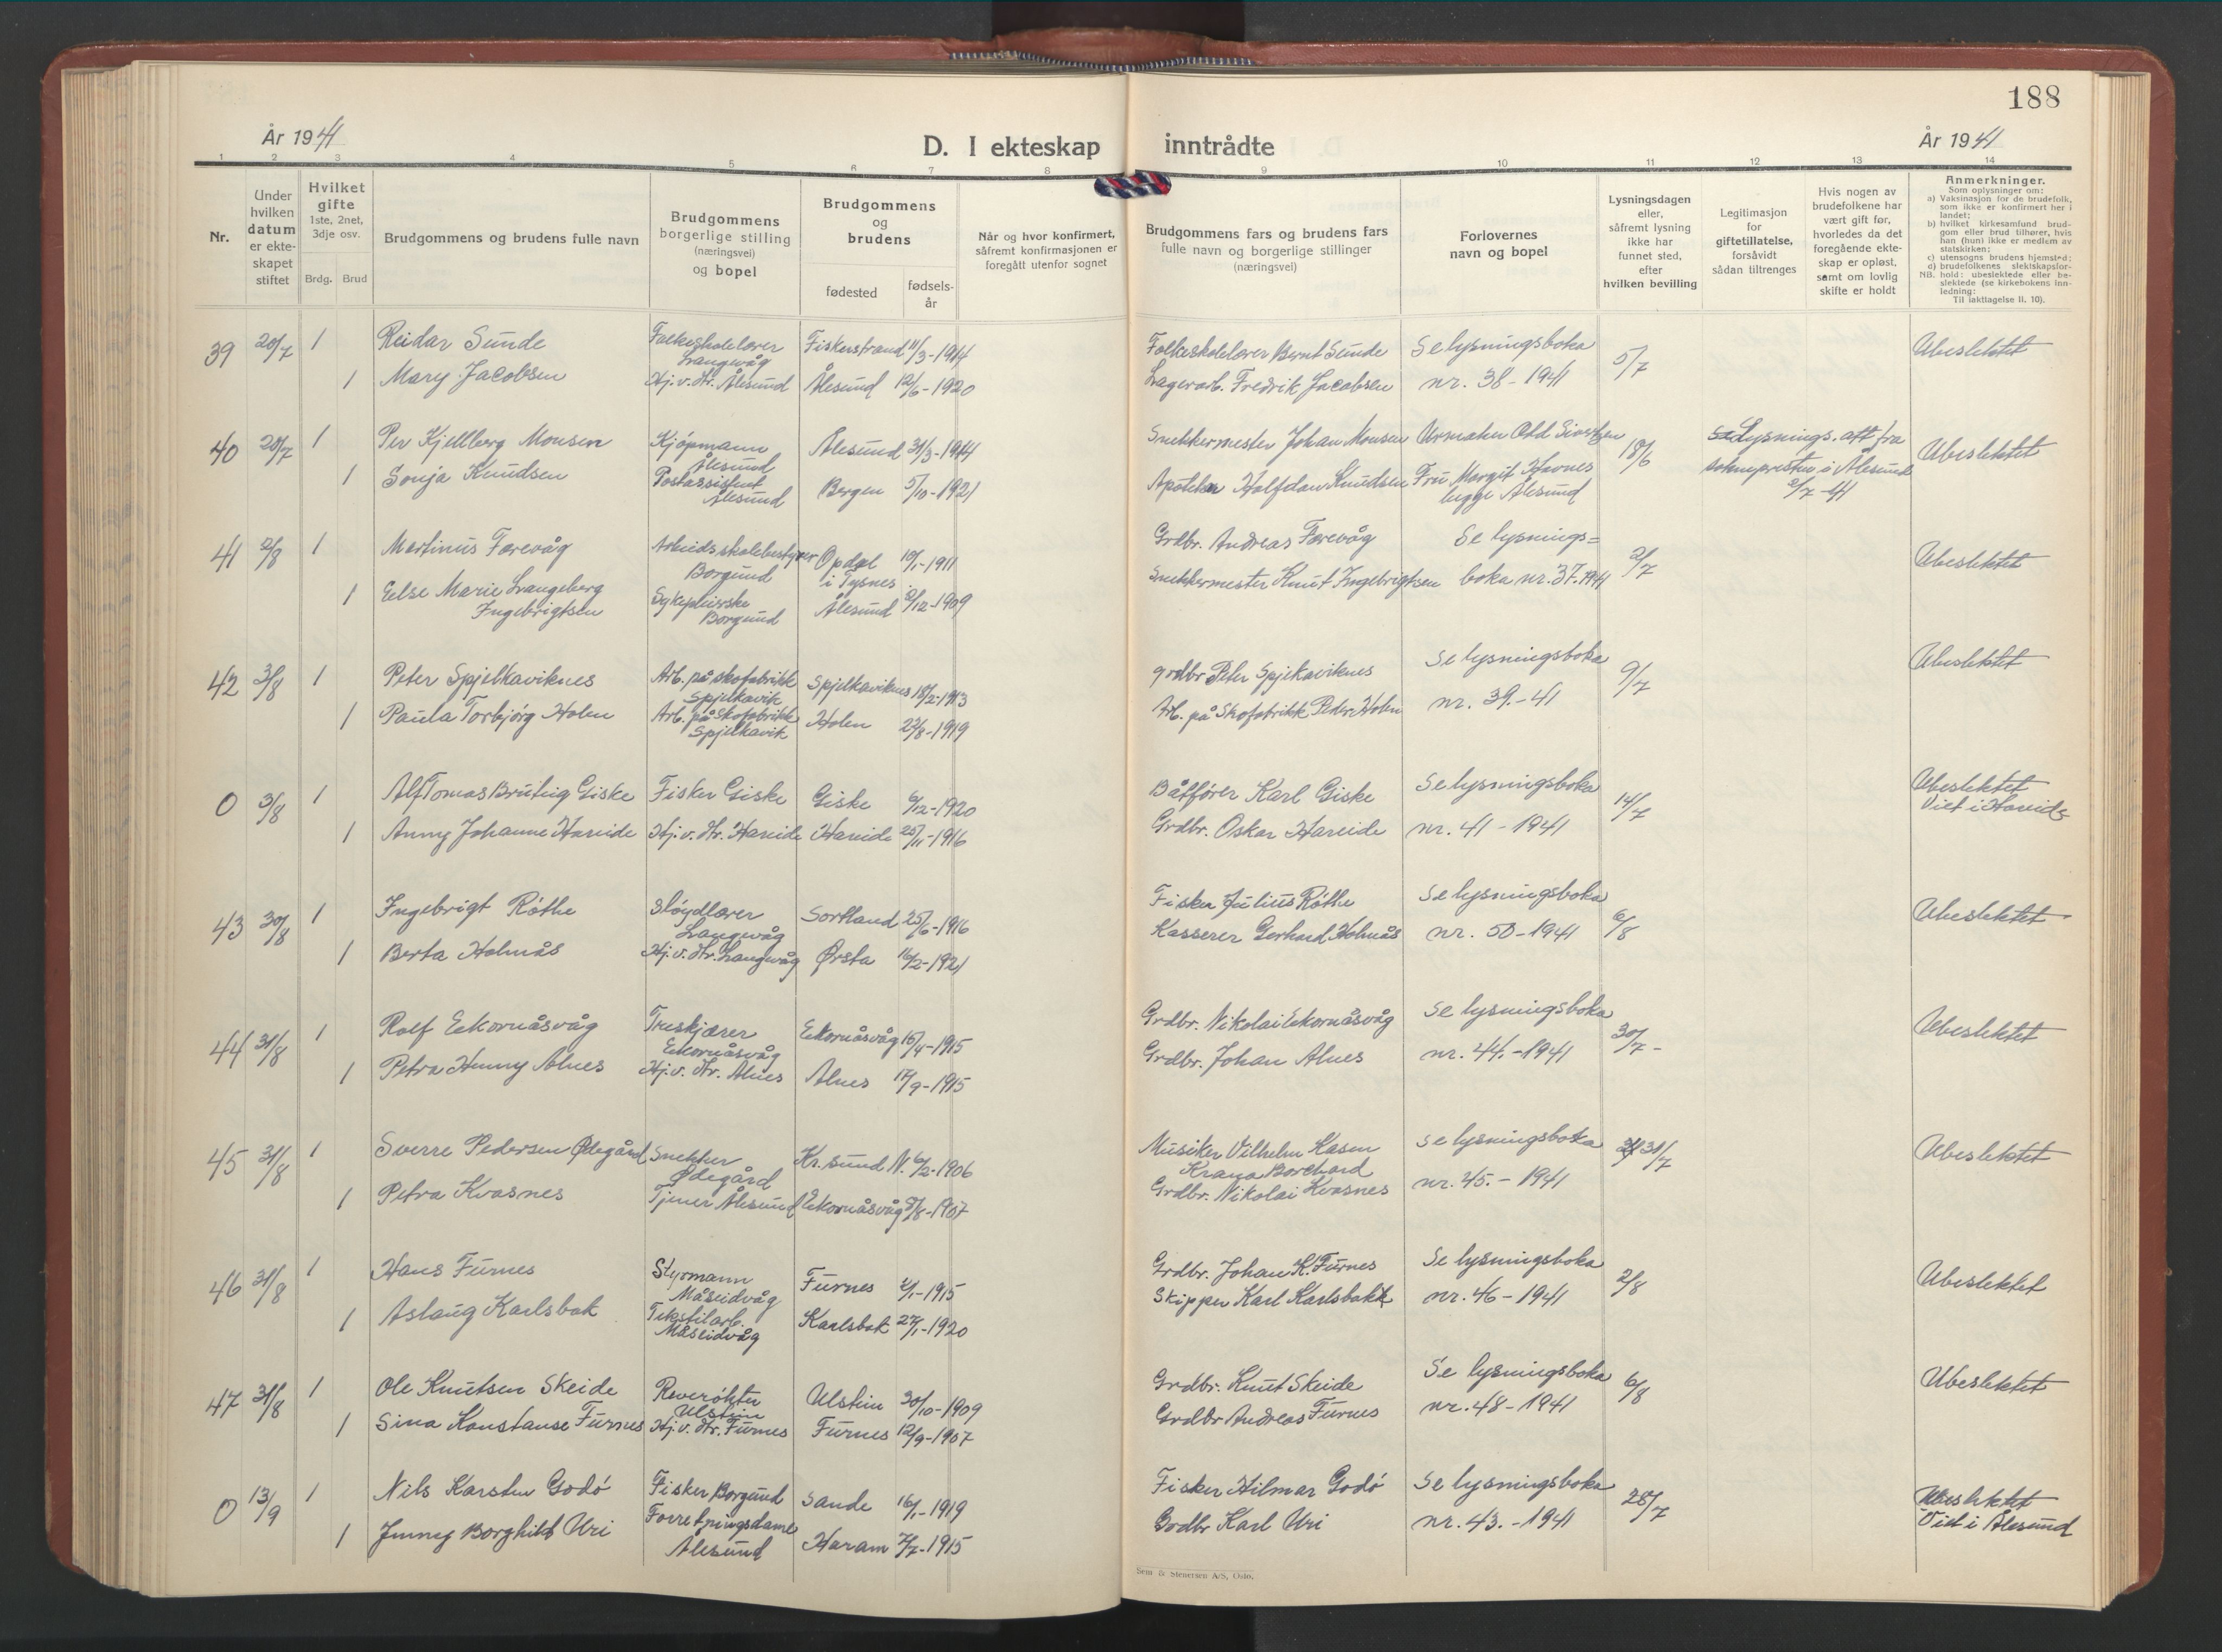 188
År 1941
D. I ekteskap inntrådte
År 1941
1 2 3 4 5 6 7 8 9 10 11 12 13 14
Nr.
Under hvilken datum er ekte- skapet stiftet
Hvilket gifte
1ste, 2net, 3dje osv.
Brdg. Brud
Brudgommens og brudens fulle navn
Brudgommens borgerlige stilling (næringsvei) og bopel
Brudgommens og brudens
fødested
fødsels- år
Når og hvor konfirmert, såfremt konfirmasjonen er foregått utenfor sognet
Brudgommens fars og brudens fars fulle navn og borgerlige stillinger (næringsvei)
Forlovernes navn og bopel
Lysningsdagen eller, såfremt lysning ikke har funnet sted, efter hvilken bevilling
Legitimasjon for giftetillatelse, forsåvidt sådan tiltrenges
Hvis nogen av brudefolkene har vært gift før, hvorledes da det foregående ekte- skap er opløst, samt om lovlig skifte er holdt
Anmerkninger.
Som oplysninger om:
a) Vaksinasjon for de brudefolk, som ikke er konfirmert her i landet;
b) hvilket kirkesamfund brud- gom eller brud tilhører, hvis han (hun) ikke er medlem av statskirken;
c) utensogns brudens hjemsted;
d) brudefolkenes slektskapsfor- hold: ubeslektede eller be- slektede (se kirkebokens inn- ledning:
NB. Til iakttagelse II. 10).
39 20/7 1 Reidar Sunde Folkeskolelærer Langevåg Fiskerstrand 11/3-1914 Folkeskolelærer Bernt Sunde Se lysningsboka 5/7 Ubeslektet
1 Mary Jacobsen Hj. v. Hr. Ålesund Ålesund 12/6-1920 Lagerarb. Fredrik Jacobsen nr. 38-1941
40 20/7 1 Per Kjellberg Monsen Kjøpmann Ålesund Ålesund 31/3-1914 Snekkermester Johan Monsen Urmaker Odd 18/6 Lysnings. att fra soknepresten i Ålesund 2/7-41 Ubeslektet
1 Sonja Knudsen Postassistent Ålesund Bergen 5/10-1921 Apoteker Halfdan Knudsen Fru Margit Havnes begge Ålesund
41 2/8 1 Martinus Færevåg Arbeidsskolebestyrer Borgund Opdal i Tysnes 10/1-1911 Grdbr. Andreas Færevåg Se lysnings= 2/7 Ubeslektet
1 Else Marie Langeberg Ingebrigtsen Sykepleierske Borgund Ålesund 8/12-1909 Snekkermester Knut Ingebrigtsen boka nr. 37.1941
42 3/8 1 Peter Spjelkaviknes Arb. på skofabrikk Spjelkavik Spjelkaviknes 18/2-1913 grdbr Peter Spjelkaviknes Se lysningsboka 9/7 Ubeslektet
1 Paula Torbjørg Holen Arb. på Skofabrikk Spjelkavik Holen 23/8-1919 Arb. på Skofabrikk Peder Holen nr. 39.-41
0 3/8 1 Alf Tomas Brüteig Giske Fisker Giske Giske 6/12-1920 Båtfører Karl Giske Se lysningsboka 14/7 Ubeslektet Viet i Hareid
1 Anny Johanne Hareide Hj. v. Hr. Hareide Hareide 25/11-1916 Grdbr. Oskar Hareide nr. 41-1941
43 30/8 1 Ingebrigt Röthe Sløydlærer Langevåg Sortland 25/6-1916 Fisker Julius Röthe Se lysningsboka 6/8 Ubeslektet
1 Berta Holmås Hj. v. Hr. Langevåg Ørsta 16/2-1921 Kasserer Gerhard Holmås nr. 50-1941
44 31/8 1 Rolf Eikornåsvåg Treskjærer Eikornåsvåg Eikornåsvåg 15/4-1915 Grdbr. Nikolai Eikornåsvåg Se lysningsboka 30/7- Ubeslektet
1 Petra Henny Alnes Hj. v. Hr. Alnes Alnes 17/9-1915 Grdbr. Johan Alnes nr. 44.-1941
45 31/8 1 Sverre Pedersen Ødegård Snekker Ødegård Kr.sund N. 6/2-1906 Musiker Vilhelm Kasen Borchard Se lysningsboka 31/7 Ubeslektet
1 Petra Kvasnes Tjener Ålesund Eikornåsvåg 8/8-1907 Grdbr. Nikolai Kvasnes nr. 45.-1941
46 31/8 1 Hans Furnes Styrmann Måseidvåg Furnes 2/1-1915 Grdbr. Johan K. Furnes Se lysningsboka 2/8 Ubeslektet
1 Aslaug Karlsbak Tekstilarb. Måseidvåg Karlsbak 27/1-1920 Skipper Karl Karlsbakk nr. 46-1941
47 31/8 1 Ole Knutsen Skeide Reverøkter Ulstein Ulstein 30/10-1909 Grdbr. Knut Skeide Se lysningsboka 6/8 Ubeslektet
1 Sina Konstanse Furnes Hj. v. Hr. Furnes Furnes 12/9-1907 Grdbr Andreas Furnes nr. 48-1941
0 13/9 1 Nils Karsten Godö Fisker Borgund Sande 16/1-1919 Fisker Hilmar Godö Se lysningsboka 28/7 Ubeslektet Viet i Ålesund
1 Jenny Borghild Uri Forretningsdame Ålesund Haram 7/7-1915 Grdbr Karl Uri nr. 43.-1941
Sem & Stenersen A/S, Oslo.